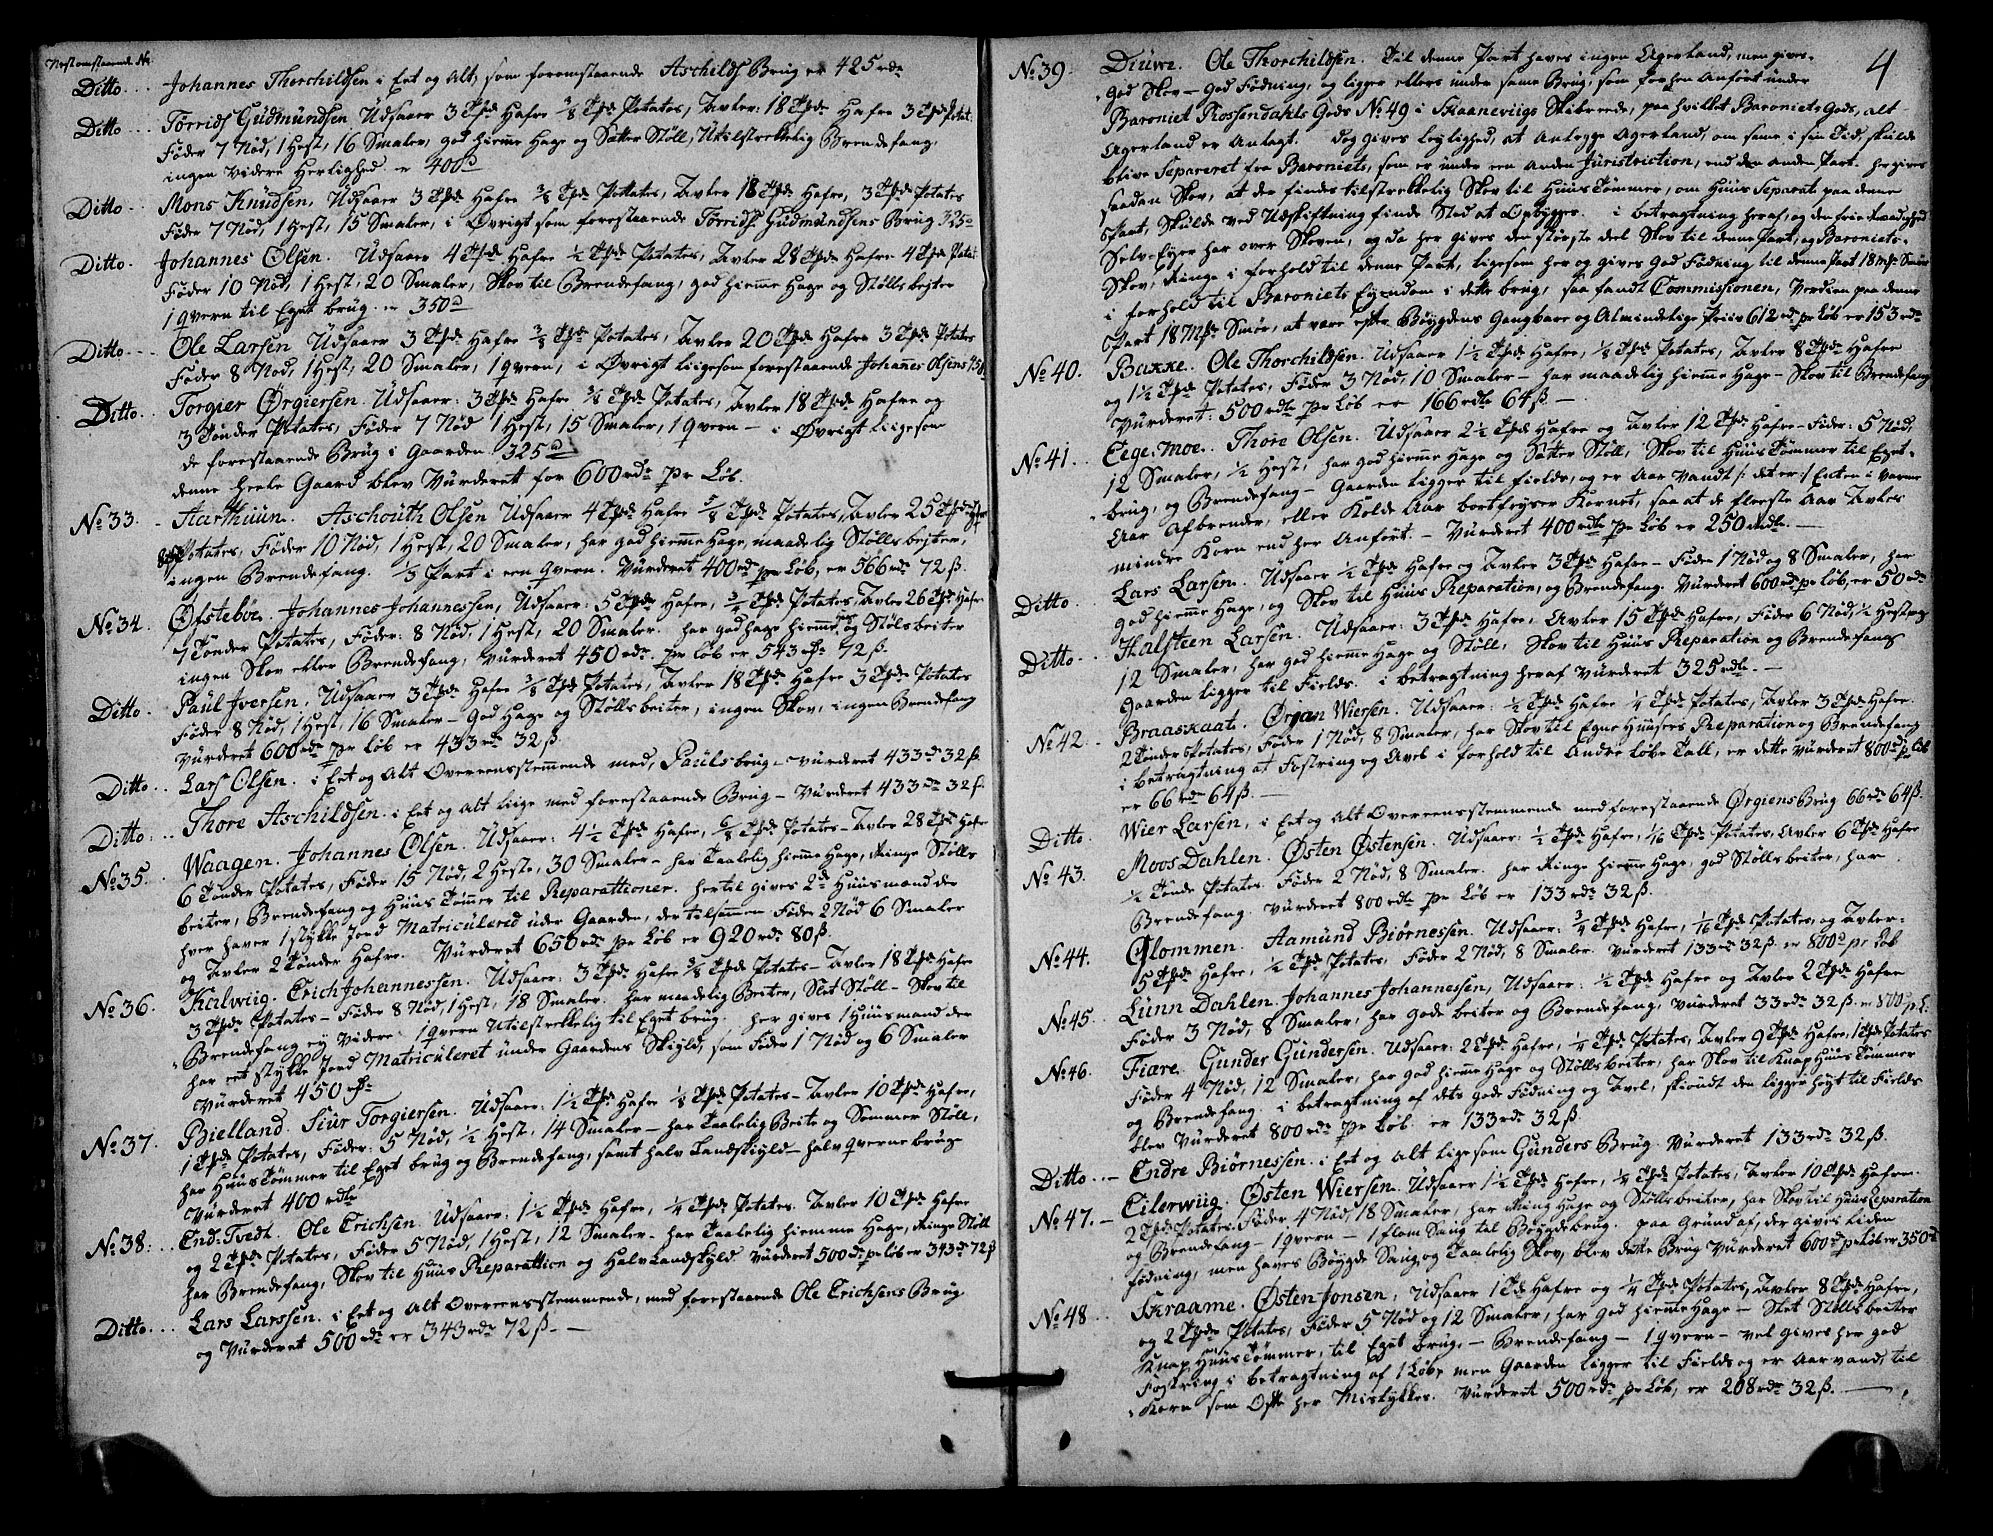 Nest omstaaende No
Ditto... Johannes Thorchildsen i Eet og Alt, som foremstaaende Aschilds Brug er 425 rdr
Ditto... Torrids Gudmundsen Udsaaer 3 Tdr Hafre 3/8 Tde Potates, Avler 18 Tdr Hafre 3 Tdr Potat.
Føder 7 Nød, 1 Hest, 16 Smaler, god hieme Hage og Sætter Støll, Utilstrekkelig Brendefang,
ingen Videre Herlighed er 400 rd
Ditto... Mons Knudsen, Udsaaer 3 Tdr Hafre 3/8 Tde Potates, Avler 18 Tdr Hafre, 3 Tdr Potates
Føder 7 Nød, 1 Hest, 15 Smaler, i Øvrigt som forestaaende Torrids Gudmundsens Brug 325 rd
Ditto. Johannes Olsen. Udsaaer 4 Tdr Hafre 1/2 Tde Potates, Avler 28 Tdr Hafre 4 Tdr Potat.
Føder 10 Nød, 1 Hest, 20 Smaler, Skov til Brendefang, god hieme Hage og Støllsbejter
1 qvern til Eget brug. er 350 rd
Ditto... Ole Larsen Udsaaer 3 Tdr Hafre 3/8 Tde Potates, Avler 20 Tdr Hafre 3 Tdr Potates
Føder 8 Nød, 1 Hest, 20 Smaler, 1 qvern, i Øvrigt liigesom forestaaende Johannes Olsens
Ditto.. Torgier Ørgiersen. Udsaaer: 3 Tdr Hafre 3/8 Tde Potates, Avler 18 Tdr Hafre og
3 Tønder Potates, Føder 7 Nød 1 Hest, 15 Smaler, 1 qvern – i Øvrigt liigesom
de forestaaende Brug i Gaarden 325 rd
denne heele Gaard blev Vurderet for 600 rdr pr Løb.
No 33. - Aarthuun. Aschouth Olsen Udsaaer 4 Tdr Hafre 5/8 Tde Potates, Avler 25 Tdr Hafre
Potates, Føder 10 Nød, 1 Hest, 20 Smaler, har god hieme Hage, maadelig Støllsbejter,
ingen Brendefang. 1/3 Part i een qvern. Vurderet 400 rdr pr Løb, er 566 rdr 72 ß.
No 34. Øfstebøe. Johannes Johannessen, Udsaaer: 5 Tdr Hafre, 3/4 Tde Potates, Avler 26 Tdr Hafre
7 Tønder Potates, Føder: 8 Nød, 1 Hest, 20 Smaler. har god hage hieme og Støllsbeiter
ingen Skov eller Brendefang, Vurderet 450 rdr pr Løb er 543 rdr 72 ß.
Ditto. Paul Iversen, Udsaaer 3 Tdr Hafre 3/8 Tde Potates, Avler 18 Tdr Hafre 3 Tdr Potates
Føder 8 Nød, 1 Hest, 16 Smaler – God Hage og Støllsbeiter, ingen Skov, ingen Brendefang
Vurderet 600 rdr pr Løb er 433 rdr 32 ß.
Ditto.. Lars Olsen. i Eet og Alt Overeensstemmende med, Pauls brug – Vurderet 433 rd 32 ß.
Ditto... Thore Aschildsen. i Eet og alt liige med forestaaende Brug – Vurderet 433 rdr 32 ß.
No 35. Waagen. Johannes Olsen. Udsaaer: 4 1/2 Tdr Hafre, 6/8 Tde Potates – Avler 28 Tdr Hafre
6 Tønder Potates, Føder 15 Nød, 2 Heste, 30 Smaler – har Taalelig hieme Hage, Ringe Stølls
beiter, Brendefang og Huus Tømer til Reparattioner. hertil gives 2de Huusmænd der
hver haver 1 stykke Jord Matriculered uder Gaarden, der tilsamen Føder 2 Nød 6 Smaler
og Avler 2 Tønder Hafre. Vurderet 650 rdr pr Løb er 920 rdr 80 ß.
No 36. Kalwiig. Erich Johannessen. Udsaaer: 3 Tdr Hafre 3/8 Tde Potates – Avler 18 Tdr Hafre
3 Tdr Potates – Føder 8 Nød, 1 Hest, 18 Smaler. har maadelig Beiter, Slet Støll – Skov til
Brendefang ey Videre. 1 qvern Utilstrekkelig til Eget brug. her gives 1 Huusmand der
har eet stykke Jord Matriculeret under Gaardens Skyld, som Føder 1 Nød og 6 Smaler
Vurderet 450 rdr
No 37. Bielland. Siur Torgiersen. Udsaaer: 1 1/2 Tdr Hafre 1/8 Tde Potates – Avler 10 Tdr Hafre,
1 Tde Potates, Føder: 5 Nød, 1/2 Hest, 14 Smaler – har Taalelig Beite og Sommer Støll,
har Huus Tømmer til Eget brug og Brendefang, samt halv Landskyld – halv qverne brug
Vurderet 400 rdlr
No 38... End-Tvedt. Ole Erichsen. Udsaaer: 1 1/2 Tdr Hafre, 1/4 Tde Potates. Avler 10 Tdr Hafre
og 2 Tdr Potates, Føder 5 Nød, 1 Hest, 12 Smaler. har Taalelig hiemme Hage, Ringe Støll
har Brendefang, Skov til Huus Reparattion og Halv Landskyld Vurderet 500 rdr pr Løb er 343 rd 72 ß
Ditto... Lars Larssen. i Eet og Alt Overeensstemmende, med forestaaende Ole Erichsens Brug
og Vurderet 500 rdr er 343 rdr 72 ß. –
4
No 39. Diuwe. Ole Thorchildsen. Til denne Part haves ingen Agerland, men gives
god Skov – God Fødning, og ligger ellers under same Brug, som forhen Anført under
Baroniet Rossendahls Gods No 49 i Skaaneviigs Skibrede, paa hvilket Baroniets Gods, alt
Agerland er Anlagt. dog gives Leylighed, at Anlegge Agerland, om same i sin Tid, skulde
blive Separeret fra Baroniets, som er under een Anden Juristriction, end den anden Part. her gives
saadan Skov, at der findes tilstrekkelig Skov til Huus Tømmer, om Huus Separat paa denne
Part, Skulde ved Udskiftning finde Sted at Opbygges. i betragtning heraf, og den frie Raadighed
Selv-Eyer har over Skoven, og da her gives den største deel Skov til denne Part, og Baroniets-
Skov, Ringe i forhold til denne Part, ligesom her og gives God Fødning til denne Part 18 mk Smør
i forhold til Baroniets Eyendom i dette brug, saa fandt Commissionen, Verdien paa denne
Part 18 Mk Smør, at være efter Bøygdens Gangbare og Almindelige Priis 612 rdr pr Løb er 153 rdr
No 40. Bakke. Ole Thorchildsen. Udsaaer 1 1/2 Tdr Hafre, 1/8 Tde Potates, Avler 8 Tdr Hafre
og 1 1/2 Tdr Potates, Føder 3 Nød, 10 Smaler – har maadelig hieme Hage – Skov til Brendefang
Vurderet: 500 rdlr pr Løb er 166 rdlr 64 ß –
No 41. Eege-Moe. Thore Olsen. Udsaaer 2 1/2 Tdr Hafre og Avler 12 Tdr Hafre – Føder: 5 Nød,
12 Smaler, 1/2 Hest, har god hieme Hage og Sætter Støll, Skov til Huus Tømmer til Eget-
brug, og Brendefang – Gaarden ligger til fields, og er Aar Vandt /: det er :/ Enten i varme
Aar Afbrender, eller Kolde Aar bortfryser Kornet, saa at de fleeste Aar Avles
mindre Korn end her Anført. – Vurderet 400 rdlr pr Løb er 250 rdlr. –
Ditto. Lars Larsen. Udsaaer 1/2 Tde Hafre og Avler 3 Tdr Hafre – Føder 1 Nød og 8 Smaler, har
god hieme Hage, og Skov til Huus Reparation, og Brendefang. Vurderet 600 rdr pr Løb, er 50 rdr
Ditto... Halsteen Larsen. Udsaaer: 3 Tdr Hafre, Avler 15 Tdr Hafre, Føder 6 Nød, 1/2 Hest og
12 Smaler, har god hieme Hage og Støll, Skov til Huus Reparation og Brendefang
Gaarden ligger til Fields. i betragtning heraf Vurderet 325 rdlr. –
No 42. Braaskaat. Ørjan Wiersen. Udsaaer: 1/2 Tde Hafre 1/4 Tde Potates, Avler 3 Tdr Hafre.
2 Tønder Potates, Føder 1 Nød, 8 Smaler, har Skov til Egne Huusers Reparation og Brendefang
i betragtning at Fostring og Avel i forhold til Andre Løbe Tall, er dette Vurderet 800 rd pr Løb
er 66 rdr 64 ß. –
Ditto. Wier Larsen, i Eet og Alt Overeensstemmende med forestaaende Ørgiens Brug 66 rdr 64 ß.
No 43. Moos Dahlen. Østen Østensen. Udsaaer: 1/2 Tde Hafre, 1/16 Tde Potates, Avler 6 Tdr Hafre
1/2 Tønde Potates Føder 2 Nød, 8 Smaler. har Ringe hieme Hage, god Støllsbeiter, har
Brendefang. Vurderet 800 rdr pr Løb er 133 rdr 32 ß.
No 44. Glommen. Aamund Biørnessen. Udsaaer: 3/4 Tde Hafre, 1/16 Tde Potates, og Avler:
5 Tdr Hafre, 1/2 Tde Potates, Føder 2 Nød, 8 Smaler. Vurderet 133 rd 32 ß. er 800 rd pr Løb
No 45. Lunn Dahlen. Johannes Johannesen, Udsaaer: 1/2 Tde Hafre og Avler 2 Tdr Hafre
Føder 3 Nød, 8 Smaler, har gode beiter og Brendefang, Vurderet 33 rdr 32 ß. er 800 rd p. L.
No 46. Fiære. Gunder Gundersen. Udsaaer: 2 Tdr Hafre, 1/4 Tde Potates, Avler 9 Tdr Hafre, 1 Tde Potates
Føder 4 Nød, 12 Smaler, har god hieme Hage og Støllsbeiter, har Skov til Knap Huus Tømmer
og Brendefang. i betragtning af dets gode Fødning og Avel, skiøndt den ligger høyt til Fields
blev Vurderet 800 rdr pr Løb. er 133 rdr 32 ß.
Ditto... – Endre Biørnessen. i Eet og Alt ligesom Gunders Brug. Vurderet 133 rdr 32 ß.
No 47. – Eilerwiig. Østen Wiersen. Udsaaer 1 1/2 Tdr Hafre, 1/4 Tde Potates, Avler 10 Tdr Hafre.
2 Tdr Potates. Føder 4 Nød, 18 Smaler, har Ring Hage og Støllsbeiter, har Skov til Huus Reparation
og Brendefang – 1 qvern – 1 flom Saug til Bøygdebrug. paa Grund af, der gives liden
fødning, men haves Bøygde Saug og Taalelig Skov, blev dette Brug Vurderet 600 rd pr Løb er 350 rd
No 48. Kraame. Østen Jonsen, Udsaaer 1 Tde Hafre og 1/4 Tde Potates, Avler 8 Tdr Hafre,
og 2 Tdr Potates, Føder 5 Nød og 12 Smaler, har God hieme Hage – Slet Støllsbeiter
Knap Huus Tømmer, til Eget brug, – Brendefang – 1 qvern – vel gives her god
Fostring i betragtning af 1 Løbe men Gaarden Ligger til Fields og er Aarvand, til
Korn som Ofte her Mislykkes. Vurderet 500 rdr pr Løb, er 208 rdr 32 ß. –